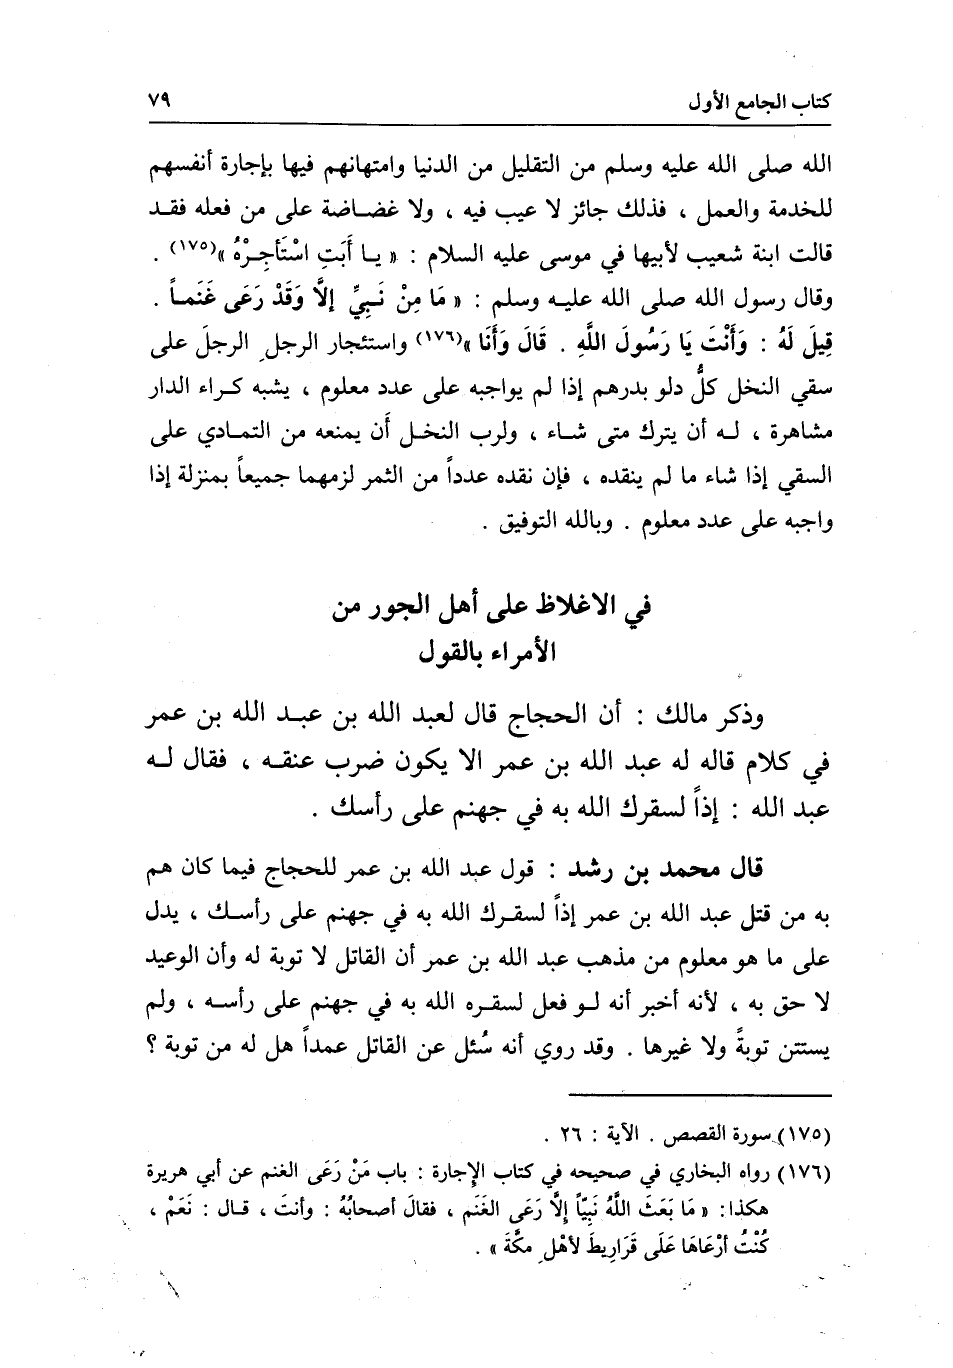 كتاب الجامع الأول ٧٩
الله صلى الله عليه وسلم من التقليل من الدنيا وامتهانهم فيها بإجارة أنفسهم
للخدمة والعمل ، فذلك جائز لا عيب فيه ، ولا غضاضة على من فعله فقد
قالت ابنة شعيب لأبيها في موسى عليه السلام : « يا أَبَتِ اسْتَأجِرْهُ »(١٧٥) .
وقال رسول الله صلى الله عليه وسلم : « مَا مِنْ نَبِيٍّ إلَّا وَقَدْ رَعَى غَنَماً .
قِيلَ لَهُ : وَأَنْتَ يَا رَسُولَ اللَّهِ . قَالَ وَأَنَا »(١٧٦) واستئجار الرجلِ الرجلَ على
سقي النخل كلُّ دلو بدرهم إذا لم يواجبه على عدد معلوم ، يشبه كراء الدار
مشاهرة ، له أن يترك متى شاء ، ولرب النخل أن يمنعه من التمادي على
السقي إذا شاء ما لم ينقده ، فإن نقده عدداً من الثمر لزمهما جميعاً بمنزلة إذا
واجبه على عدد معلوم . وبالله التوفيق .
في الاغلاظ على أهل الجور من
الأمراء بالقول
وذكر مالك : أن الحجاج قال لعبد الله بن عبد الله بن عمر
في كلام قاله له عبد الله بن عمر الا يكون ضرب عنقه ، فقال له
عبد الله : إذاً لسقرك الله به في جهنم على رأسك .
قال محمد بن رشد : قول عبد الله بن عمر للحجاج فيما كان هم
به من قتل عبد الله بن عمر إذاً لسقرك الله به في جهنم على رأسك ، يدل
على ما هو معلوم من مذهب عبد الله بن عمر أن القاتل لا توبة له وأن الوعيد
لا حق به ، لأنه أخبر أنه لو فعل لسقره الله به في جهنم على رأسه ، ولم
يستثن توبةً ولا غيرها . وقد روي أنه سُئل عن القاتل عمداً هل له من توبة ؟
(١٧٥) سورة القصص . الآية : ٢٦ .
(١٧٦) رواه البخاري في صحيحه في كتاب الإِجارة : باب مَنْ رَعَى الغنم عن أبي هريرة
هكذا : « مَا بَعَثَ اللَّهُ نَبِيّاً إلَّا رَعَى الغَنَم ، فقالَ أصحابُهُ : وأنتَ ، قال : نَعَمْ ،
كُنْتُ أرْعَاهَا عَلَى قَرَارِيطَ لأهْلِ مكَّةَ » .